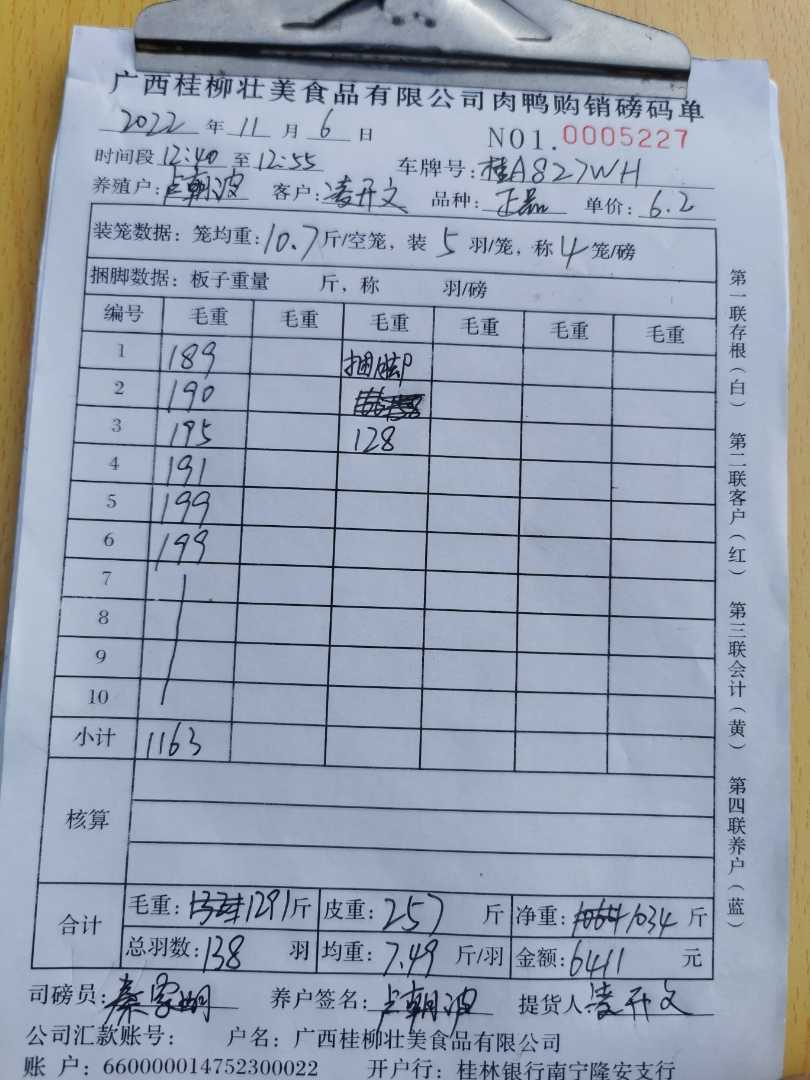 广西桂柳壮美食品有限公司肉鸭购销磅码单
2022 年 11 月 6 日 NO1.0005227
时间段 12:40 至 12:55 车牌号: 桂A827WH
养殖户: 卢朝波 客户: 凌开文 品种: 正品 单价: 6.2
装笼数据: 笼均重: 10.7 斤/空笼, 装 5 羽/笼, 称 4 笼/磅
捆脚数据: 板子重量 斤, 称 羽/磅
编号 毛重 毛重 毛重 毛重 毛重 毛重
1 189 捆脚
2 190
3 195 128
4 191
5 199
6 199
7
8
9
10
小计 1163
核算
合计 毛重: 1291 斤 皮重: 257 斤 净重: 1034 斤
总羽数: 138 羽 均重: 7.49 斤/羽 金额: 6411 元
司磅员: 秦 养户签名: 卢朝波 提货人 凌开文
公司汇款账号: 户名: 广西桂柳壮美食品有限公司
账 户: 660000014752300022 开户行: 桂林银行南宁隆安支行
第一联存根(白) 第二联客户(红) 第三联会计(黄) 第四联养户(蓝)